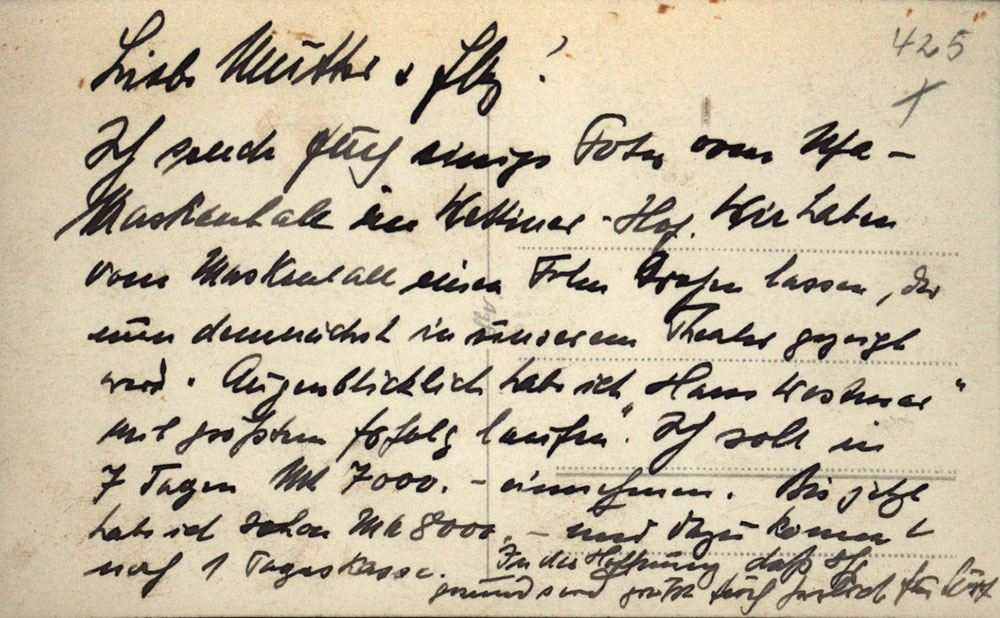 425
Liebe Mutter + Elly!
Ich sende Euch einige Fotos vom Ufa-
Maskenball im Wettiner-Hof. Wir haben
vom Maskenball einen Film drehen lassen, der
nun demnächst in unserem Theater gezeigt
wird. Augenblicklich habe ich „Hans Westmar"
mit größtem Erfolg laufen. Ich soll in
7 Tagen Mk 7000.- einnehmen. Bis jetzt
habe ich schon Mk 8000.- und dazu kommt
noch 1 Tageskasse. In der Hoffnung daß Ihr
gesund seid grüßt Euch herzlich